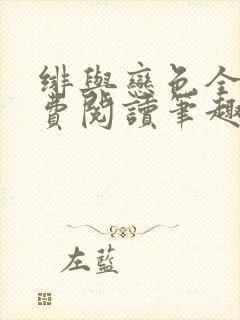 緋與戀色全
費閱讀筆趣
左藍